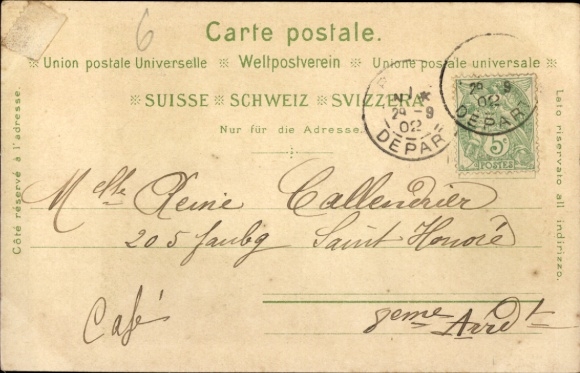 6
Carte postale.
Union postale Universelle Weltpostverein Unione postale universale
SUISSE SCHWEIZ SVIZZERA
Nur für die Adresse.
Côté réservé à l'adresse.
Lato riservato all indirizzo.
29 - 9
02
DEPART
29 9
02
DEPART
5c
POSTES
Melle Reine Callendrier
205 faubg Saint Honoré
8eme Arrdt
Café